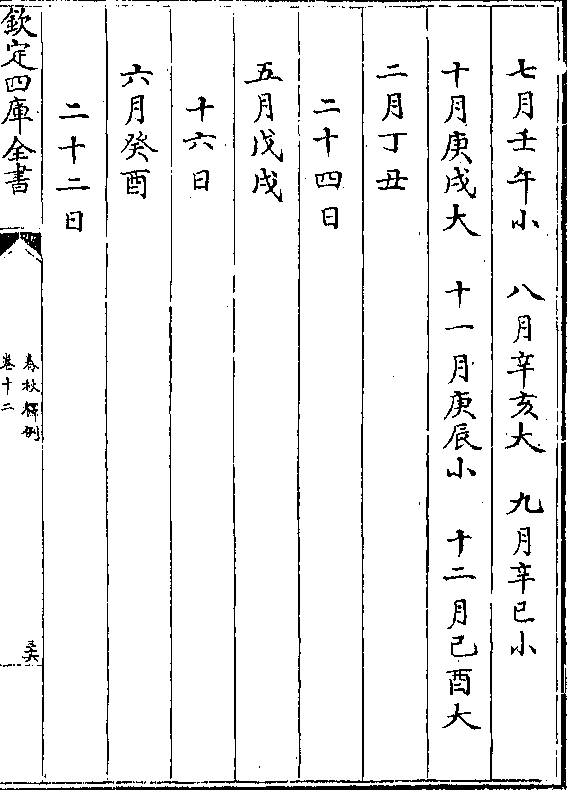 七月壬午小 八月辛亥大 九月辛巳小
十月庚戌大 十一月庚辰小 十二月己酉大
二月丁丑
二十四日
五月戊戌
十六日
六月癸酉
二十二日
欽定四庫全書
春秋釋例
卷十二